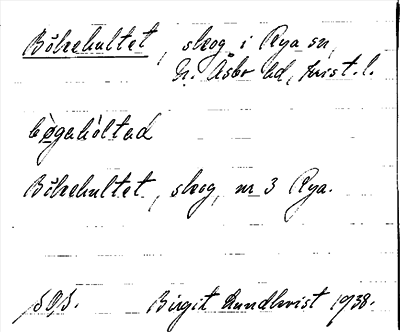 Bökehultet, skog i Rya sn,
N. Åsbo hd, Krist. l.
bø̀gahól̀tad
Bökehultet, skog, nr 3 Rya.
1938.
Birgit Lundkvist 1938.